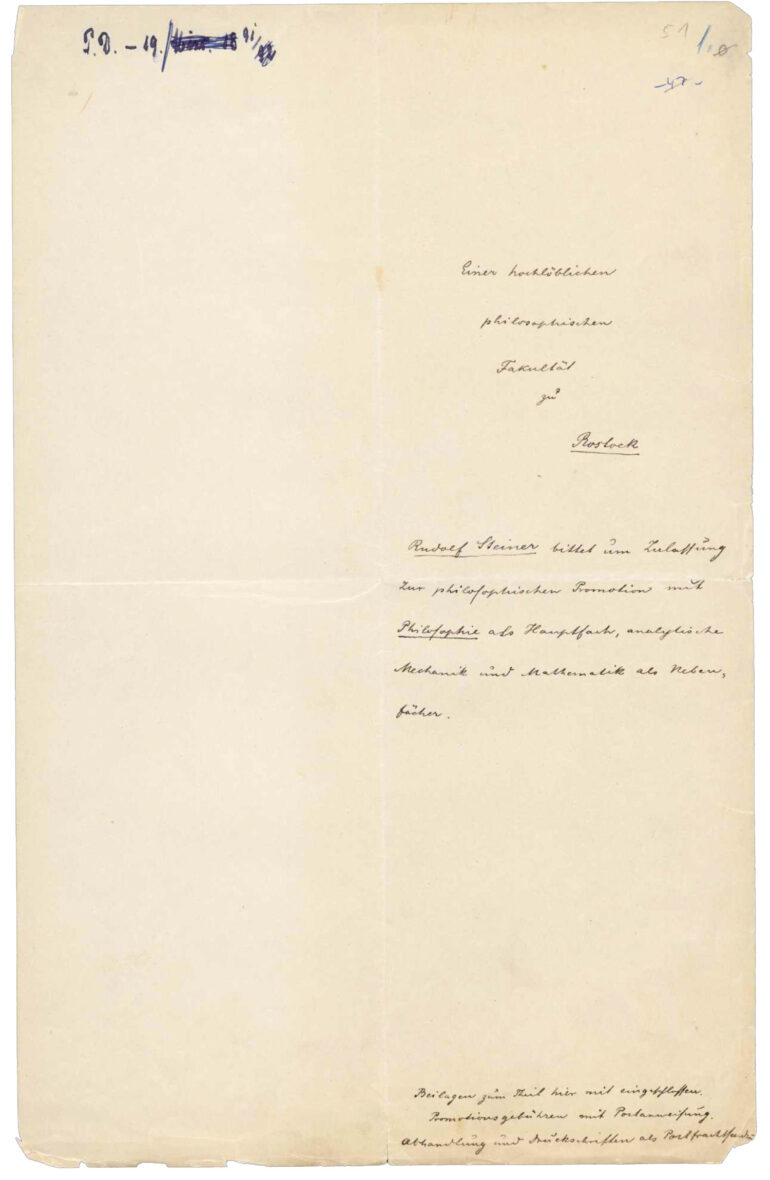 P.D. – 19./ 91/92
51
1.
Einer hochlöblichen
philosophischen
Fakultät
zu
Rostock
Rudolf Steiner bittet um Zulaſſung
zur philoſophischen Promotion mit
Philoſophie als Hauptfach, analytische
Mechanik und Mathematik als Neben-
fächer.
Beilagen zum Theil hier mit eingeſchloſſen.
Promotionsgebühren mit Poſtanweiſung.
Abhandlung und Druckschriften als